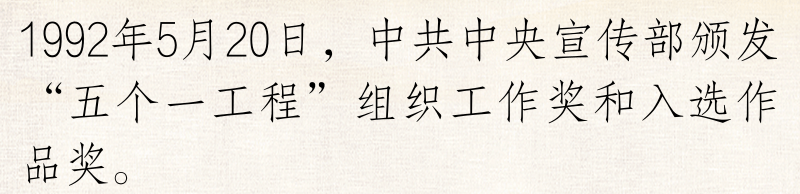 1992年5月20日，中共中央宣传部颁发
“五个一工程”组织工作奖和入选作
品奖。